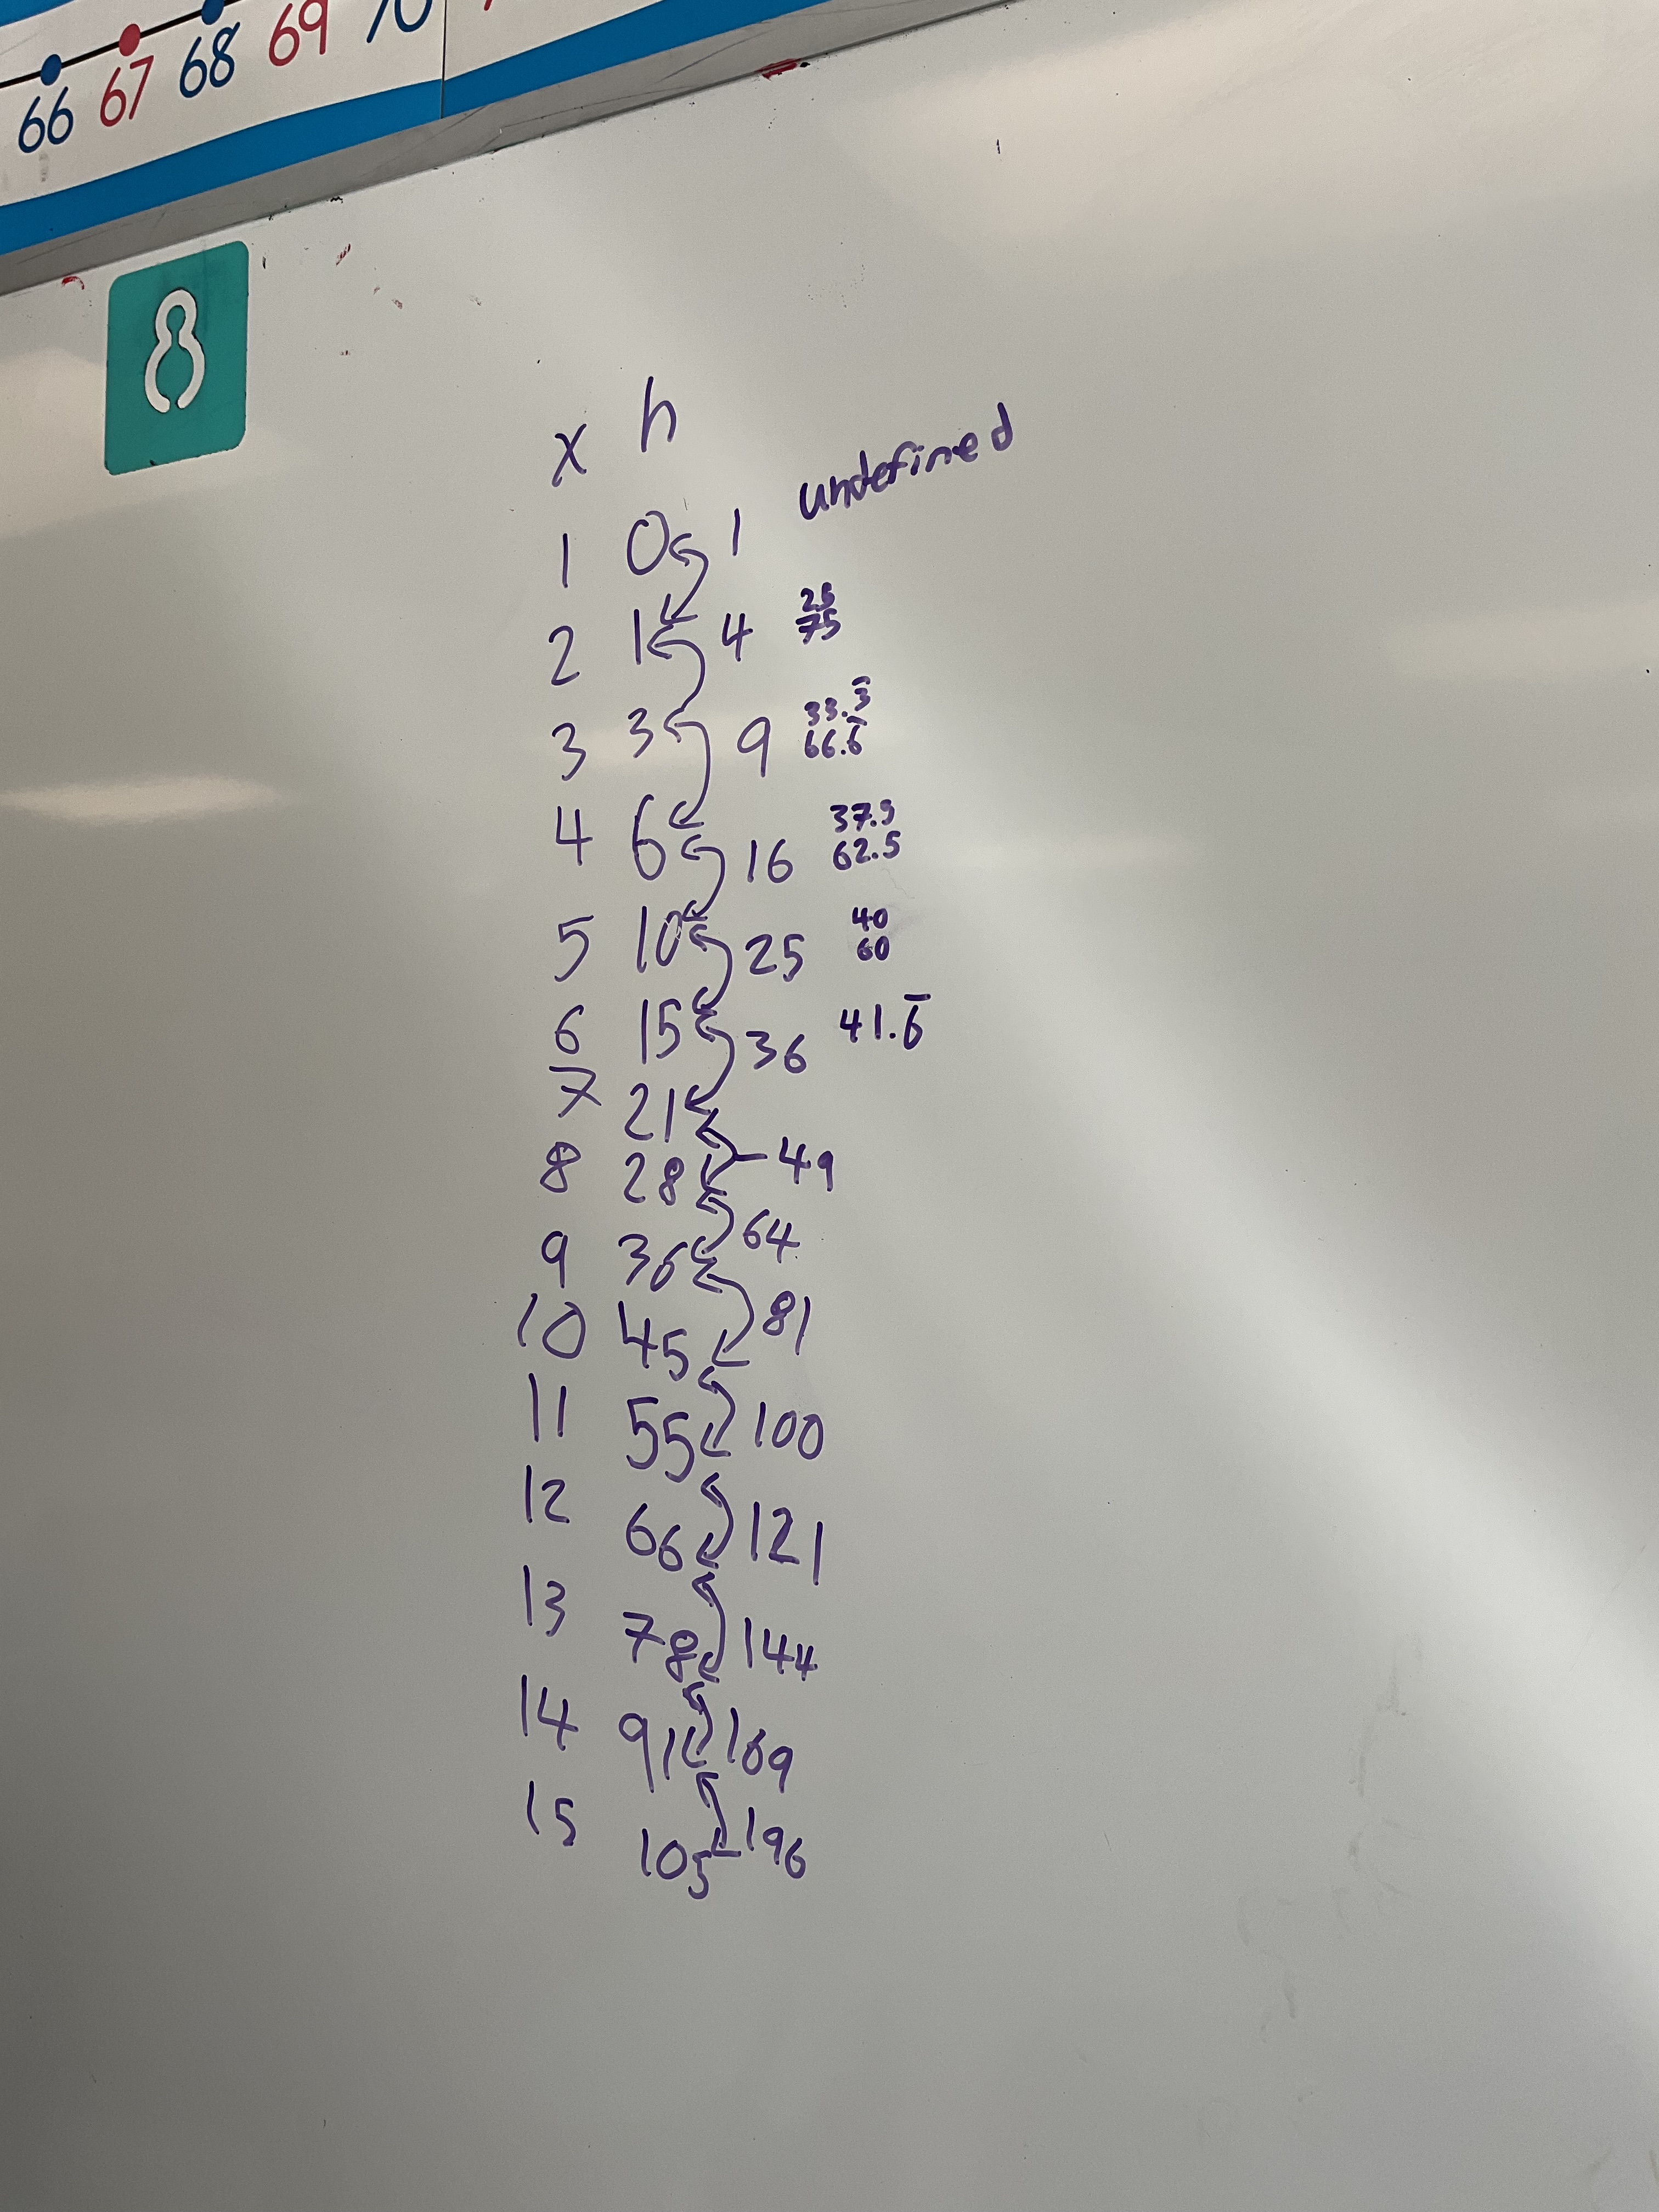 66 67 68 69 70
8
x h
undefined
1 0 1
2 1 4 25
75
3 3 9 33.3̅
66.6̅
4 6 16 37.5
62.5
5 10 25 40
60
6 15 36 41.6̅
7 21
49
8 28
64
9 36
81
10 45
11 55 100
12 66 121
13 78 144
14 91 169
15 105 196